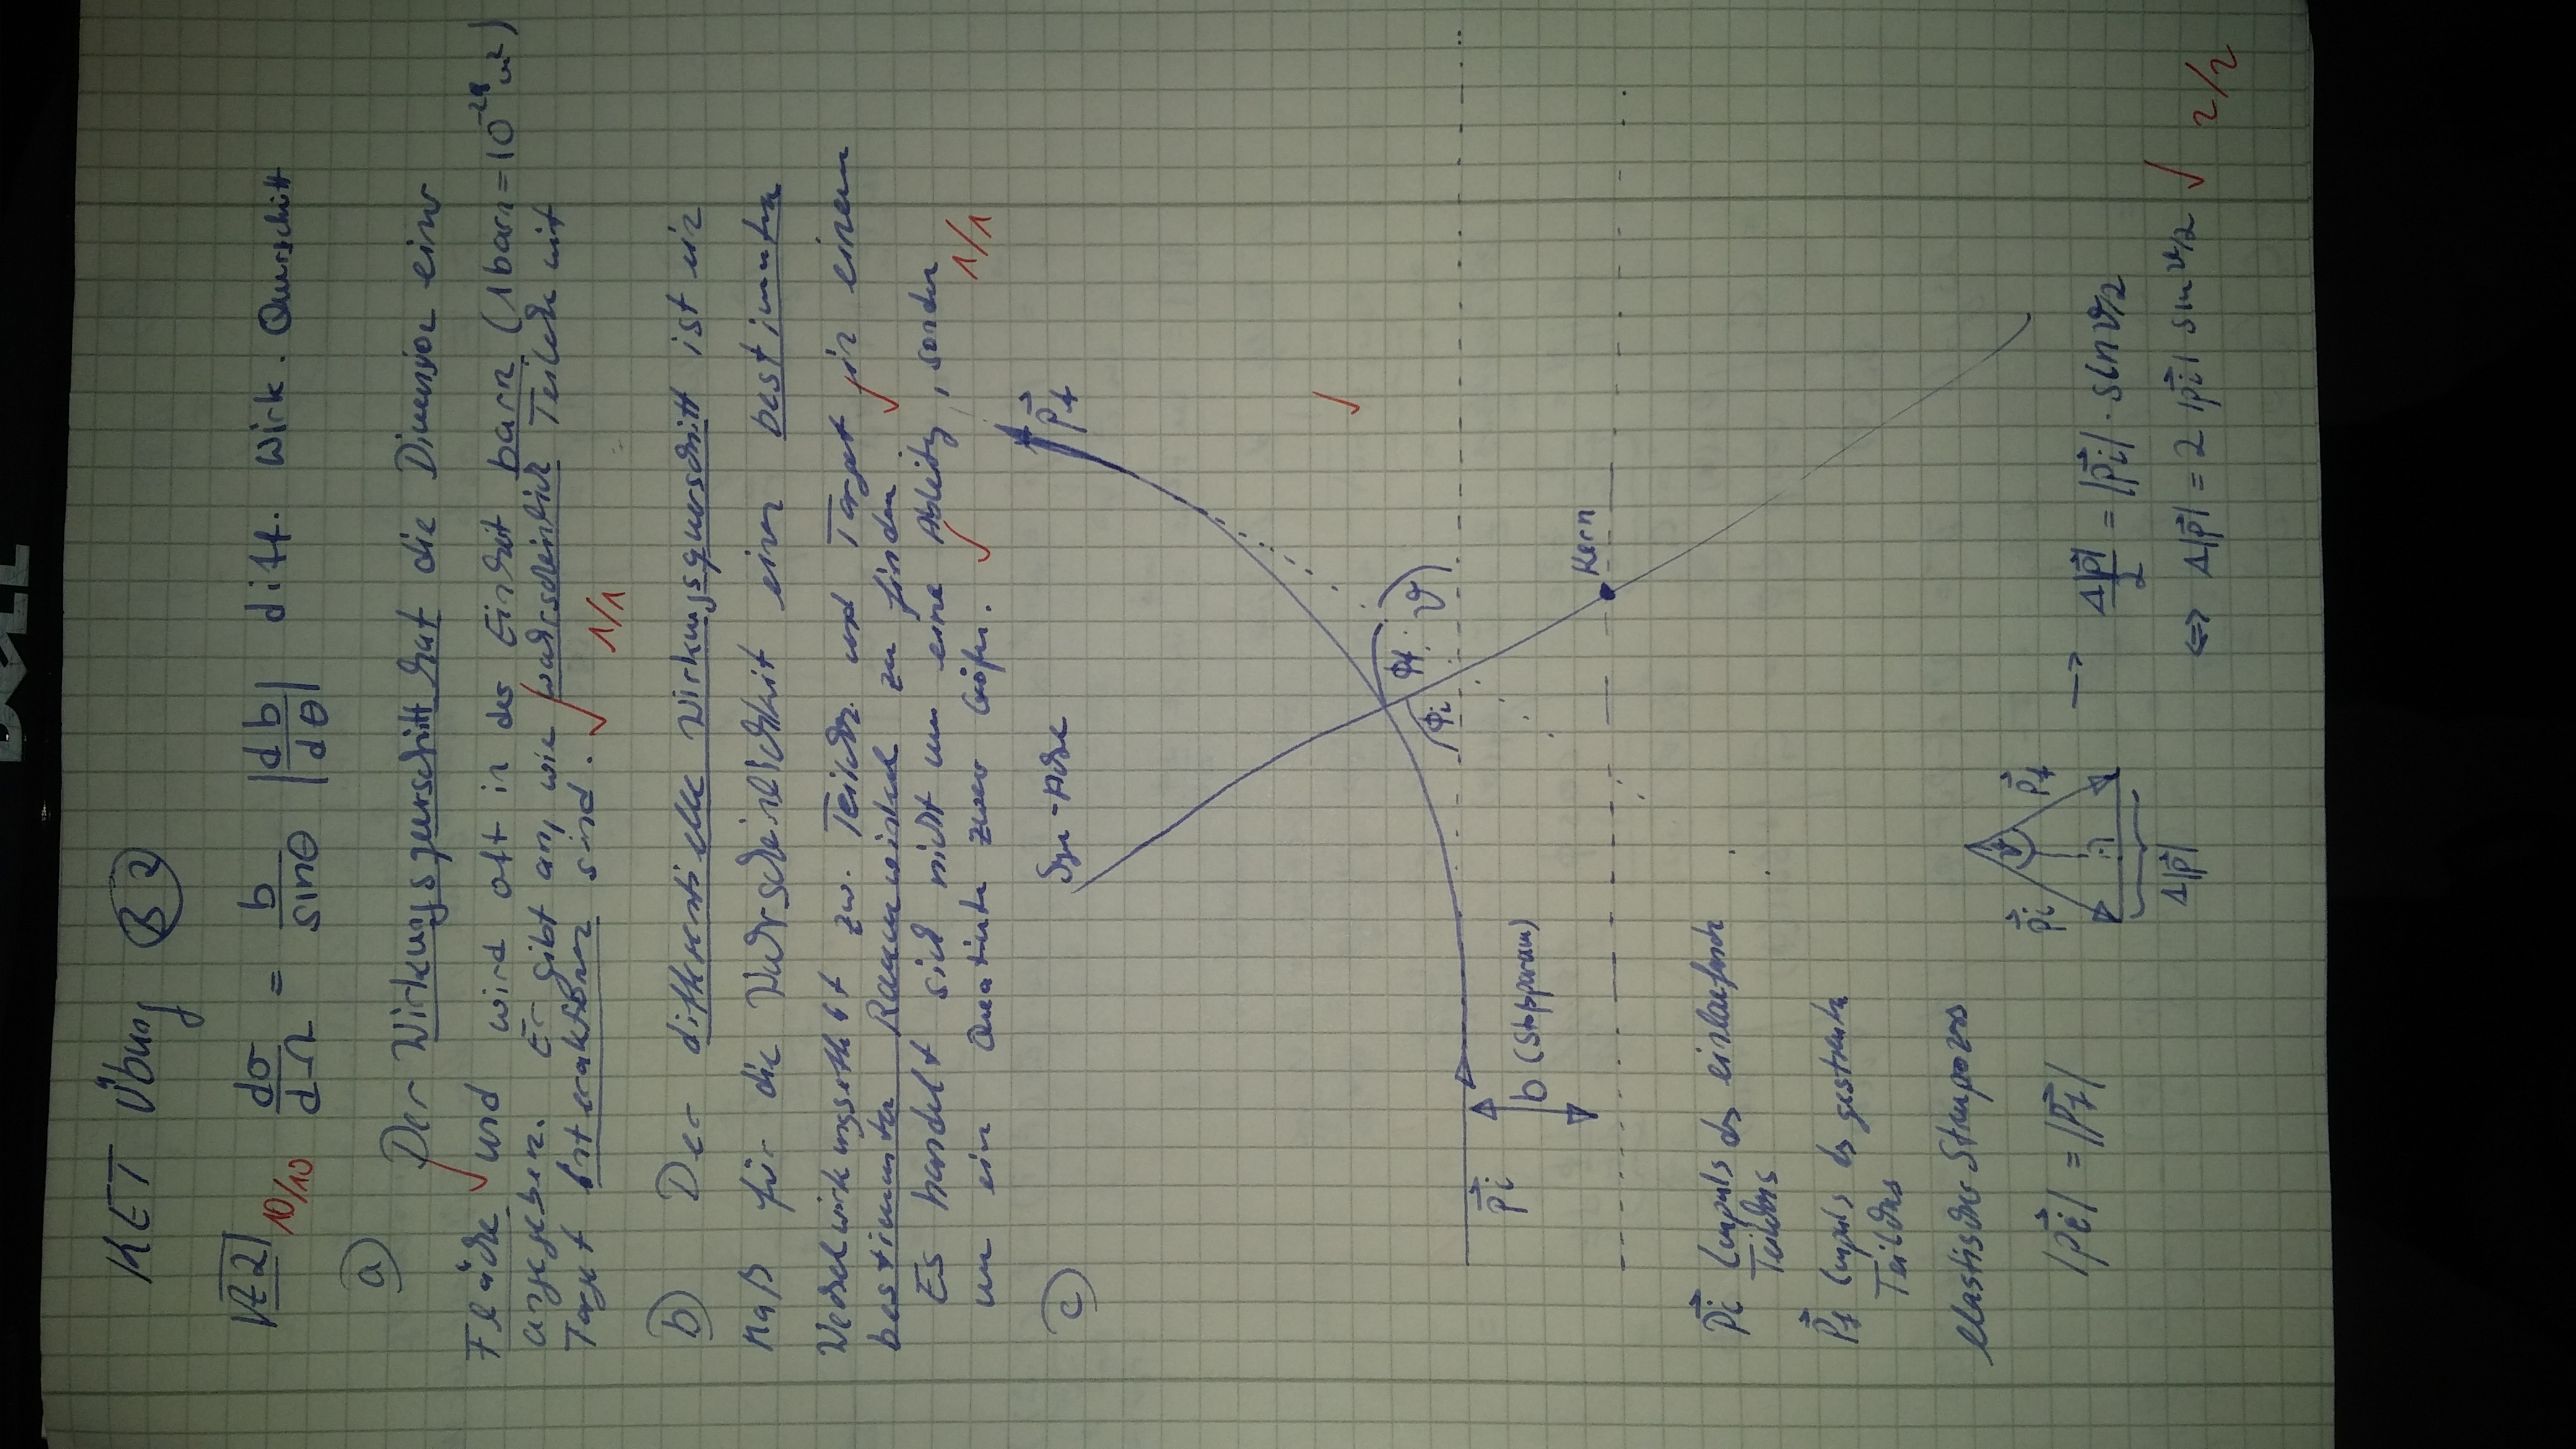 DELL
KET Übung B2
VZ 2 10/10 dσ/dΩ = b/sinθ |db/dθ| diff. Wirk. Querschnitt
a)
Der Wirkungsquerschnitt hat die Dimension einer
Fläche und wird oft in der Einheit barn (1 barn = 10^-28 m²)
angegeben. Er gibt an, wie wahrscheinlich Teilchen mit
Target Interaktionen sind.
1/1
b) Der differentielle Wirkungsquerschnitt ist ein
Maß für die Wahrscheinlichkeit einen bestimmten
Wechselwirkungseffekt zw. Teilchen und Target in einem
bestimmten Raumwinkel zu finden.
Es handelt sich nicht um eine Ableitg, sondern
um ein zwei Größen.
1/1
c)
Sym-Achse
p⃗f
ϕi ϕf ϑ
p⃗i
b (Stoßparam)
Kern
p⃗i Impuls des einlaufenden
Teilchens
p⃗f Impuls des gestreuten
Teilchens
elastischer Streuprozess
|p⃗i| = |p⃗f|
p⃗i ϑ p⃗f
Δ|p⃗|
→ Δ|p⃗|/2 = |p⃗i| · sin ϑ/2
⇔ Δ|p⃗| = 2 |p⃗i| sin ϑ/2
2/2